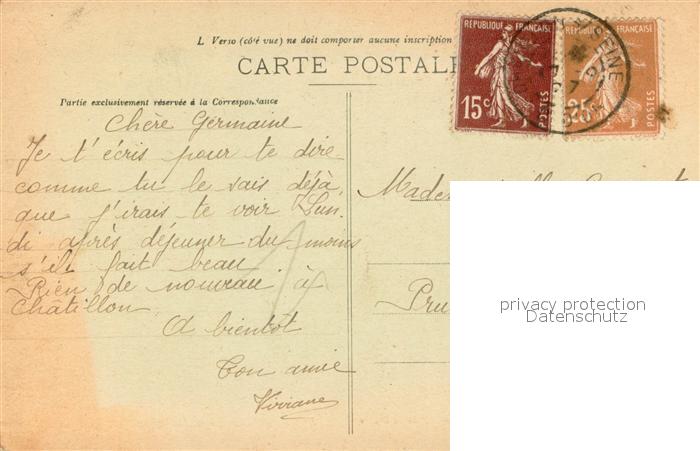 L Verso (côté vue) ne doit comporter aucune inscription
CARTE POSTALE
RÉPUBLIQUE FRANÇAISE
15c
POSTES
RÉPUBLIQUE FRANÇAISE
25c
POSTES
SEINE
Partie exclusivement réservée à la Correspondance
Chère Germaine
Je t'écris pour te dire
comme tu le sais déjà,
que j'irais te voir Lun-
di après déjeuner du moins
s'il fait beau.
Rien de nouveau à
Châtillon.
A bientôt
Ton amie
Viviane
Made
Pru
privacy protection
Datenschutz